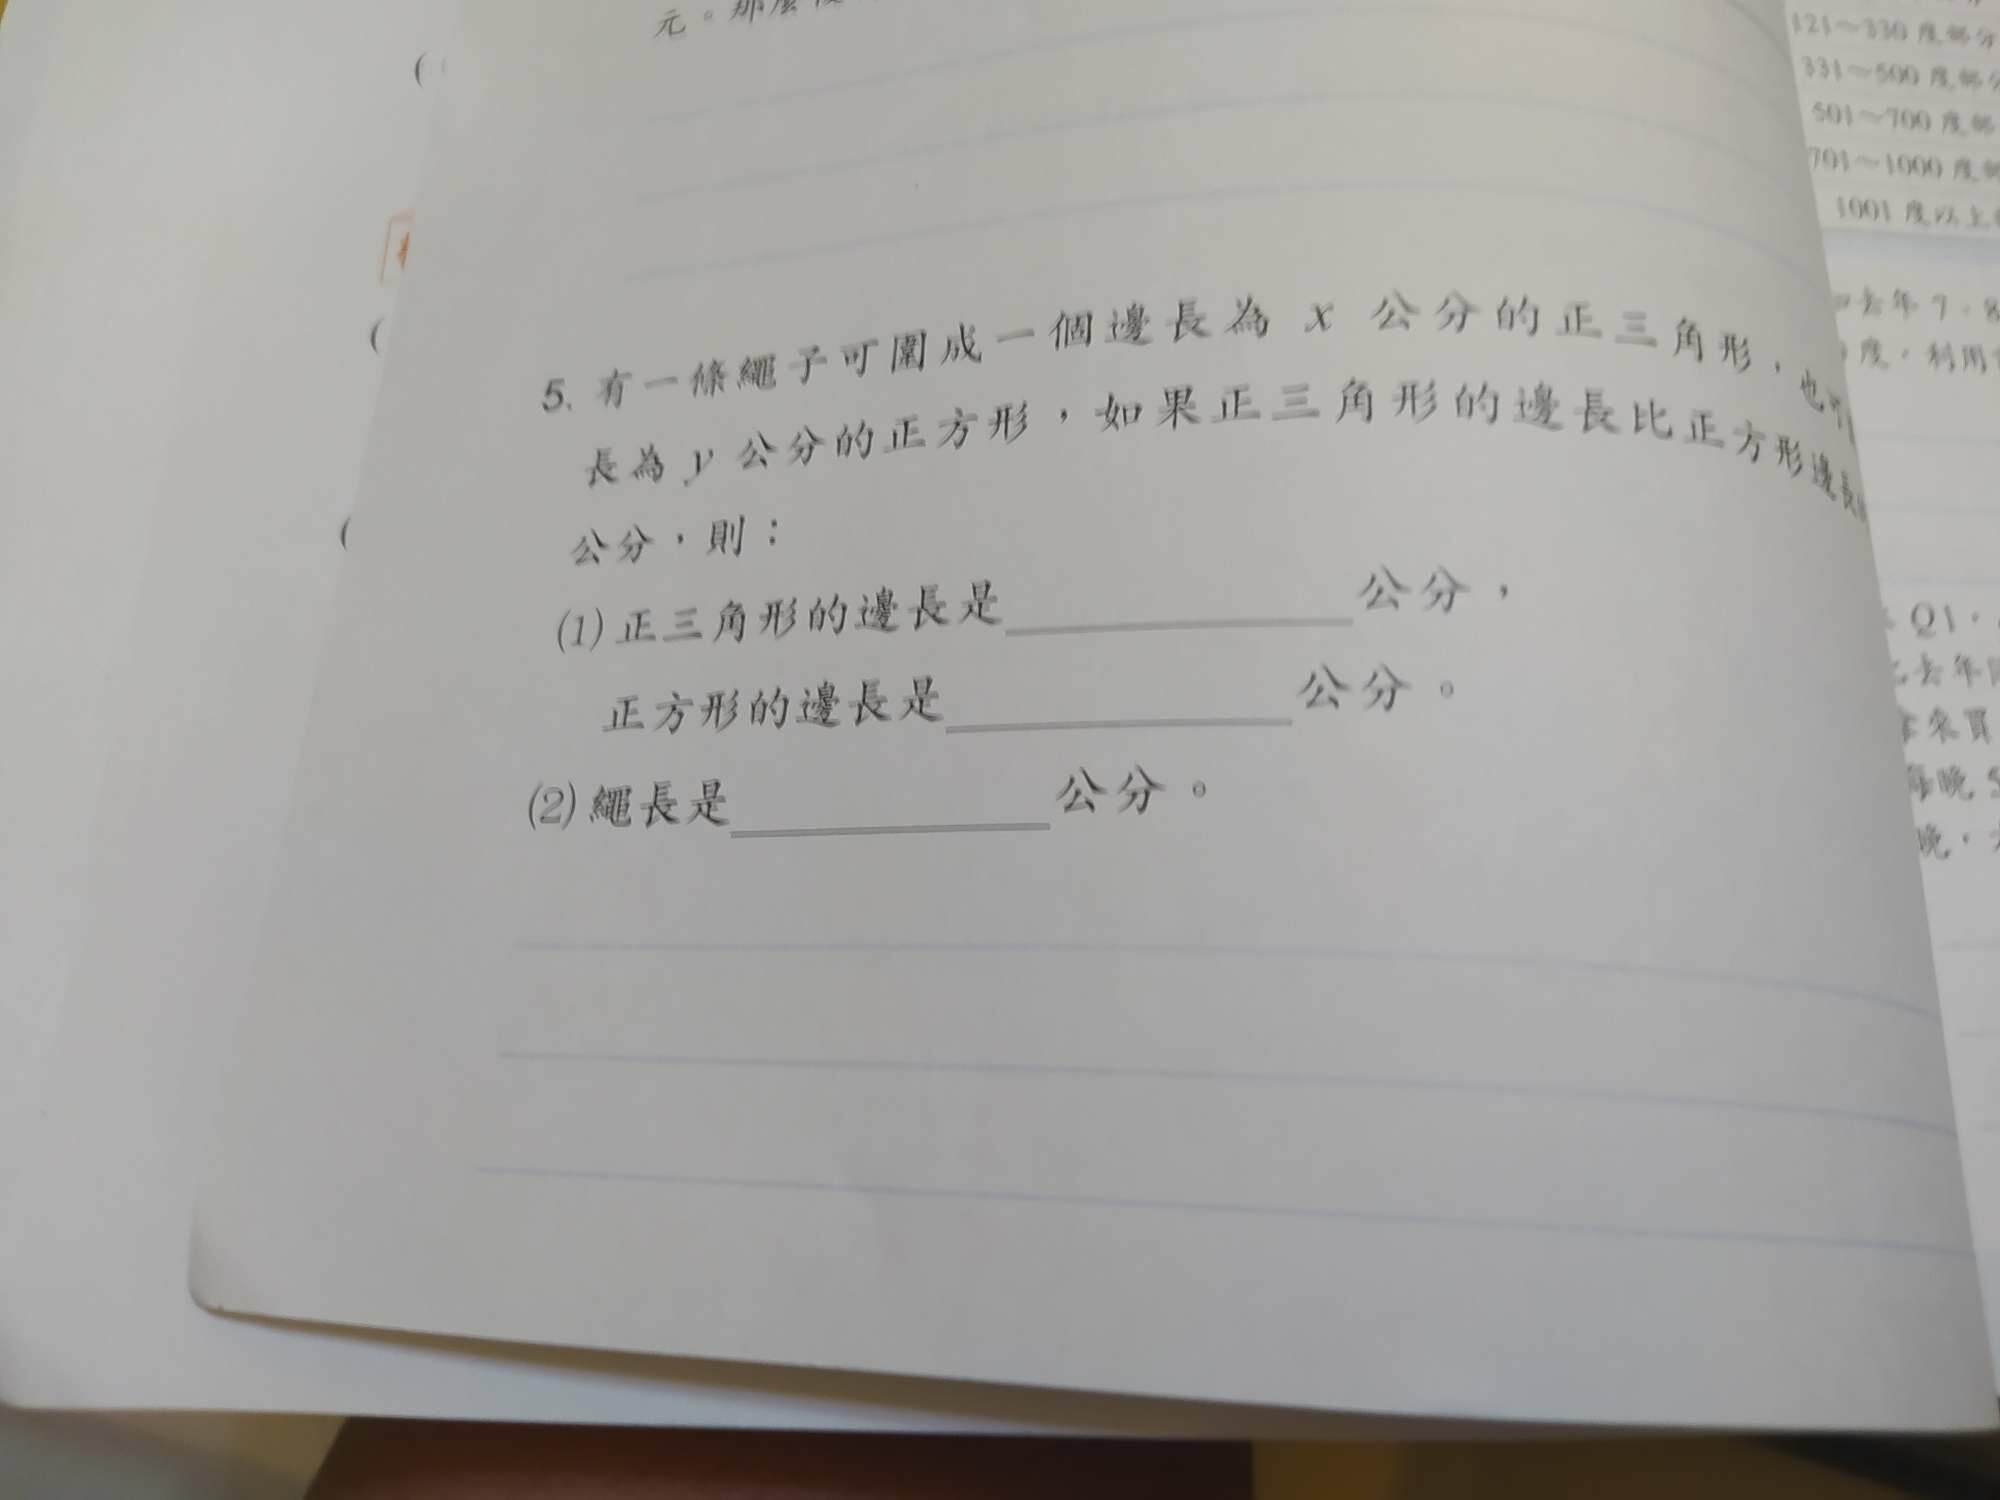 元。那麼
5. 有一條繩子可圍成一個邊長為 x 公分的正三角形，也可
長為 y 公分的正方形，如果正三角形的邊長比正方形邊長
公分，則：
(1) 正三角形的邊長是＿＿＿＿＿＿公分，
正方形的邊長是＿＿＿＿＿＿公分。
(2) 繩長是＿＿＿＿＿＿公分。
121～330 度部分
331～500 度部分
501～700 度部
701～1000 度部
1001 度以上
去年 7、8
度，利用
Q1，
去年
來買
每晚 5
晚，